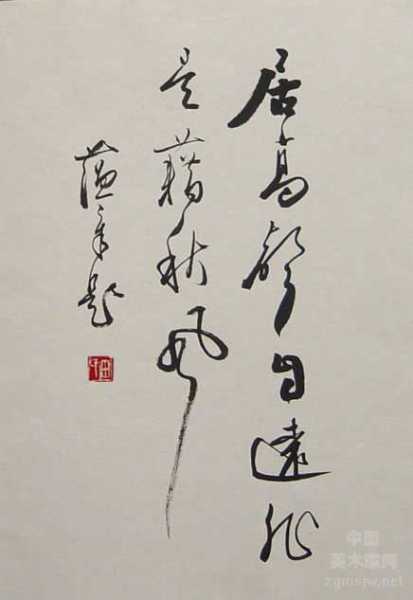 居高聲自遠非
是藉秋風
題
中国
美术家网
zgmsjw.net